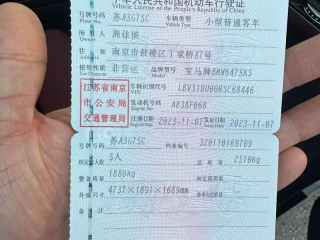 中华人民共和国机动车行驶证
Vehicle License of the People's Republic of China
号牌号码 苏A3G75C 车辆类型 小型普通客车
Plate No. Vehicle Type
所有人 周佳瑛
Owner
住址 南京市鼓楼区丁家桥87号
Address
使用性质 非营运 品牌型号 宝马牌BMW6475KS
Use Character Model
江苏省南京市公安局交通管理局
车辆识别代号 LBV31DU00RSC68446
VIN
发动机号码 A838F068
Engine No.
注册日期 2023-11-07 发证日期 2023-11-07
Register Date Issue Date
号牌号码 苏A3G75C 档案编号 320110169709
核定载人数 5人 总质量 2510kg
整备质量 1880kg 核定载质量
外廓尺寸 4737×1891×1689mm